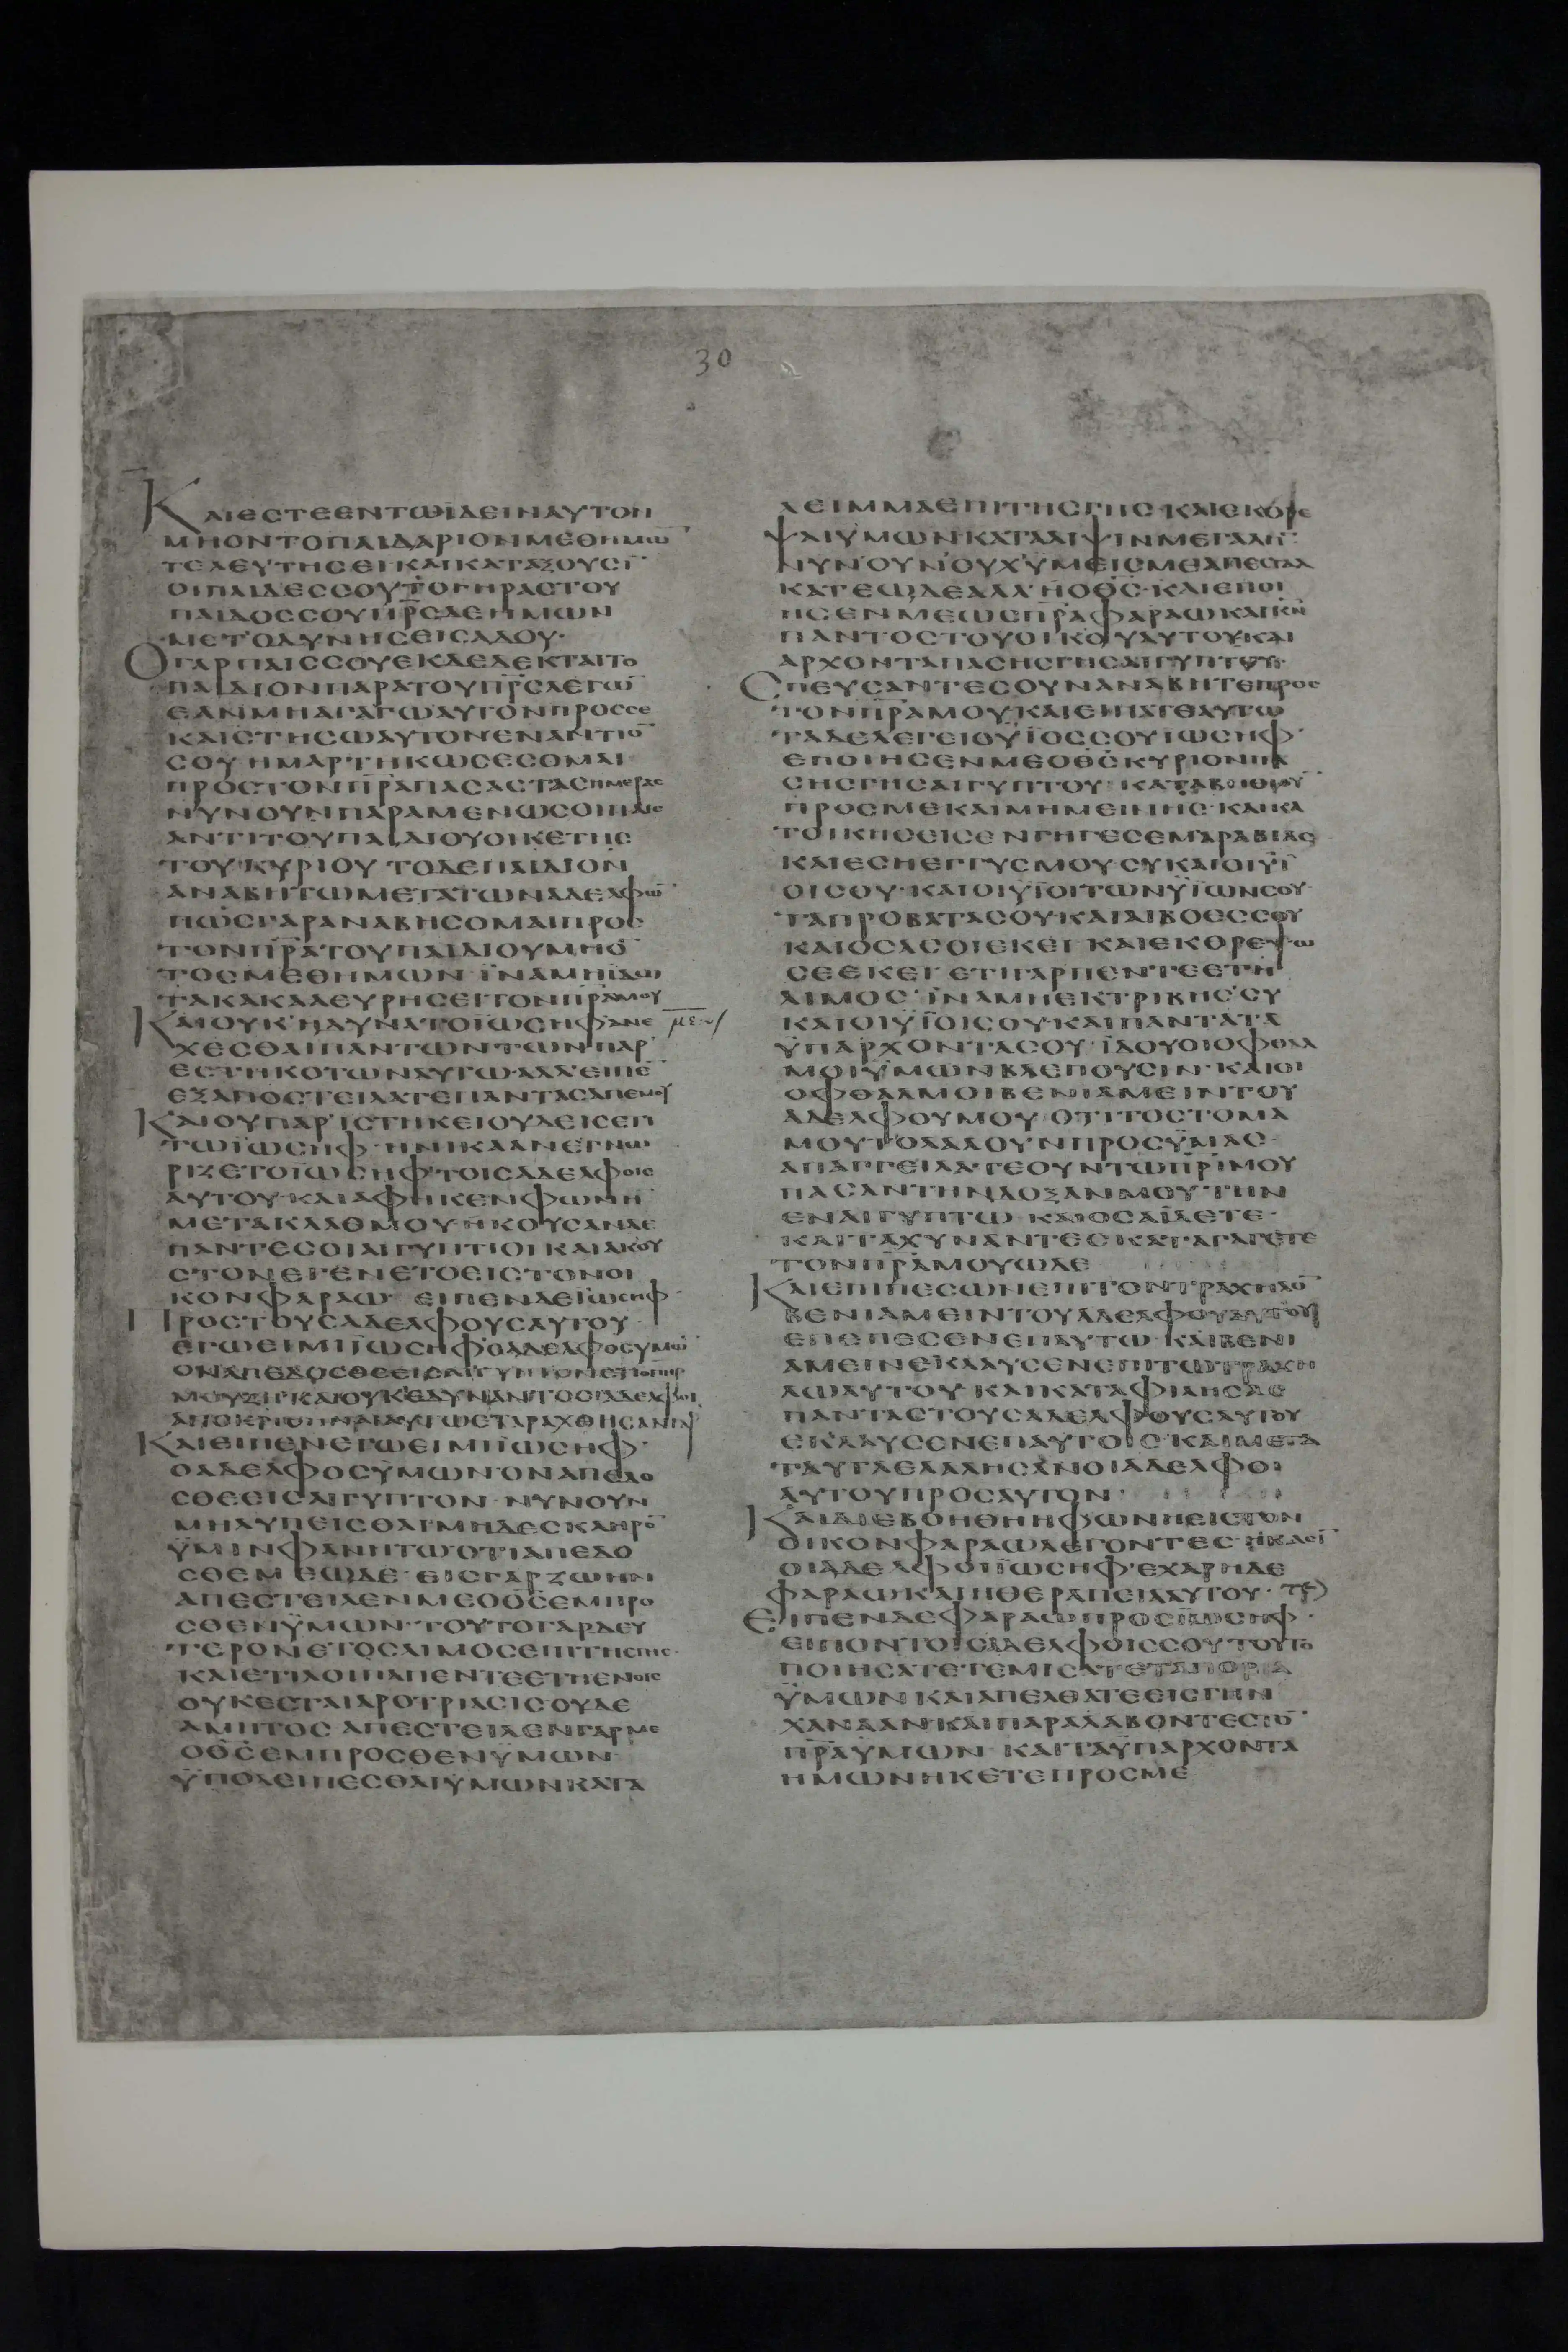 30
ΚΑΙΕΣΤΕΕΝΤΩΪΔΕΙΝΑΥΤΟΝ
ΜΗΟΝΤΟΠΑΙΔΑΡΙΟΝΜΕΘΗΜΩ̅
ΤΕΛΕΥΤΗΣΕΙ·ΚΑΙΚΑΤΑΞΟΥΣΙ̅
ΟΙΠΑΙΔΕΣΣΟΥΤΟΓΗΡΑΣΤΟΥ
ΠΑΙΔΟΣΣΟΥΠ̅Ρ̅Σ̅ΔΕΗΜΩΝ
ΜΕΤΟΔΥΝΗΣΕΙΣΑΔΟΥ·
ΟΓΑΡΠΑΙΣΣΟΥΕΚΔΕΔΕΚΤΑΙΤΟ
ΠΑΙΔΙΟΝΠΑΡΑΤΟΥΠ̅Ρ̅Σ̅ΛΕΓΩ̅
ΕΑΝΜΗΑΓΑΓΩΑΥΤΟΝΠΡΟΣΣΕ
ΚΑΙΣΤΗΣΩΑΥΤΟΝΕΝΑΝΤΙΟ̅
ΣΟΥ·ΗΜΑΡΤΗΚΩΣΕΣΟΜΑΙ
ΠΡΟΣΤΟΝΠ̅Ρ̅Α̅ΠΑΣΑΣΤΑΣΗΜΕΡΑΣ
ΝΥΝΟΥΝΠΑΡΑΜΕΝΩΣΟΙΠΑΙΣ
ΑΝΤΙΤΟΥΠΑΙΔΙΟΥΟΙΚΕΤΗΣ
ΤΟΥΚΥΡΙΟΥ·ΤΟΔΕΠΑΙΔΙΟΝ
ΑΝΑΒΗΤΩΜΕΤΑΤΩΝΑΔΕΛΦΩ̅
ΠΩΣΓΑΡΑΝΑΒΗΣΟΜΑΙΠΡΟΣ
ΤΟΝΠ̅Ρ̅Α̅ΤΟΥΠΑΙΔΙΟΥΜΗΟ̅
ΤΟΣΜΕΘΗΜΩΝ·ΪΝΑΜΗΪΔΩ
ΤΑΚΑΚΑΑΕΥΡΗΣΕΙΤΟΝΠ̅Ρ̅Α̅ΜΟΥ
ΚΑΙΟΥΚΗΔΥΝΑΤΟΪΩΣΗΦΑΝΕ
ΧΕΣΘΑΙΠΑΝΤΩΝΤΩΝΠΑΡ
ΕΣΤΗΚΟΤΩΝΑΥΤΩ·ΑΛΛΕΙΠΕ̅
ΕΞΑΠΟΣΤΕΙΛΑΤΕΠΑΝΤΑΣΑΠΕΜΟΥ
ΚΑΙΟΥΠΑΡΙΣΤΗΚΕΙΟΥΔΕΙΣΕΠΙ
ΤΩΪΩΣΗΦ·ΗΝΙΚΑΑΝΕΓΝΩ
ΡΙΖΕΤΟΪΩΣΗΦΤΟΙΣΑΔΕΛΦΟΙΣ
ΑΥΤΟΥ·ΚΑΙΑΦΗΚΕΝΦΩΝΗ̅
ΜΕΤΑΚΛΑΘΜΟΥ·ΗΚΟΥΣΑΝΔΕ
ΠΑΝΤΕΣΟΙΑΙΓΥΠΤΙΟΙΚΑΙΑΚΟΥ
ΣΤΟΝΕΓΕΝΕΤΟΕΙΣΤΟΝΟΙ
ΚΟΝΦΑΡΑΩ·ΕΙΠΕΝΔΕΪΩΣΗΦ
ΠΡΟΣΤΟΥΣΑΔΕΛΦΟΥΣΑΥΤΟΥ
ΕΓΩΕΙΜΙΪΩΣΗΦΟΑΔΕΛΦΟΣΥΜΩ̅
ΚΑΙΕΙΠΕΝΕΓΩΕΙΜΙΪΩΣΗΦ·
ΟΑΔΕΛΦΟΣΥΜΩΝΟΝΑΠΕΔΟ
ΣΘΕΕΙΣΑΙΓΥΠΤΟΝ·ΝΥΝΟΥΝ
ΜΗΛΥΠΕΙΣΘΑΙΜΗΔΕΣΚΛΗΡΟ̅
ΫΜΙΝΦΑΝΗΤΩΟΤΙΑΠΕΔΟ
ΣΘΕΜΕΩΔΕ·ΕΙΣΓΑΡΖΩΗΝ
ΑΠΕΣΤΕΙΛΕΝΜΕΟΘ̅Σ̅ΕΜΠΡΟ
ΣΘΕΝΫΜΩΝ·ΤΟΥΤΟΓΑΡΔΕΥ
ΤΕΡΟΝΕΤΟΣΛΙΜΟΣΕΠΙΤΗΣΓΗΣ·
ΚΑΙΕΤΙΛΟΙΠΑΠΕΝΤΕΕΤΗΕΝΟΙΣ
ΟΥΚΕΣΤΑΙΑΡΟΤΡΙΑΣΙΣΟΥΔΕ
ΑΜΗΤΟΣ·ΑΠΕΣΤΕΙΛΕΝΓΑΡΜΕ
ΟΘ̅Σ̅ΕΜΠΡΟΣΘΕΝΫΜΩΝ
ΫΠΟΛΕΙΠΕΣΘΑΙΫΜΩΝΚΑΤΑ
ΛΕΙΜΜΑΕΠΙΤΗΣΓΗΣ·ΚΑΙΕΚΘΡΕ
ΨΑΙΫΜΩΝΚΑΤΑΛΙΨΙΝΜΕΓΑΛΗ̅
ΝΥΝΟΥΝΟΥΧΫΜΕΙΣΜΕΑΠΕΣΤΑΛ
ΚΑΤΕΩΔΕΑΛΛΗΟΘ̅Σ̅·ΚΑΙΕΠΟΙ
ΗΣΕΝΜΕΩΣΠ̅Ρ̅Α̅ΦΑΡΑΩΚΑΙΚ̅Ν̅
ΠΑΝΤΟΣΤΟΥΟΙΚΟΥΑΥΤΟΥΚΑΙ
ΑΡΧΟΝΤΑΠΑΣΗΣΓΗΣΑΙΓΥΠΤΟΥ·
ΣΠΕΥΣΑΝΤΕΣΟΥΝΑΝΑΒΗΤΕΠΡΟΣ
ΤΟΝΠ̅Ρ̅Α̅ΜΟΥΚΑΙΕΙΠΑΤΕΑΥΤΩ
ΤΑΔΕΛΕΓΕΙΟΥΪΟΣΣΟΥΪΩΣΗΦ·
ΕΠΟΙΗΣΕΝΜΕΟΘ̅Σ̅ΚΥΡΙΟΝΠΑ
ΣΗΣΓΗΣΑΙΓΥΠΤΟΥ·ΚΑΤΑΒΗΘΙΟΥ̅
ΠΡΟΣΜΕΚΑΙΜΗΜΕΙΝΗΣ·ΚΑΙΚΑ
ΤΟΙΚΗΣΕΙΣΕΝΓΗΓΕΣΕΜΑΡΑΒΙΑΣ
ΚΑΙΕΣΗΕΓΓΥΣΜΟΥ·ΣΥΚΑΙΟΙΫΪ
ΟΙΣΟΥ·ΚΑΙΟΙΫΪΟΙΤΩΝΫΪΩΝΣΟΥ·
ΤΑΠΡΟΒΑΤΑΣΟΥ·ΚΑΙΑΙΒΟΕΣΣΟΥ
ΚΑΙΟΣΑΣΟΙΕΚΕΙ·ΚΑΙΕΚΘΡΕΨΩ
ΣΕΕΚΕΙ·ΕΤΙΓΑΡΠΕΝΤΕΕΤΗ
ΛΙΜΟΣ·ΪΝΑΜΗΕΚΤΡΙΒΗΣΣΥ
ΚΑΙΟΙΫΪΟΙΣΟΥ·ΚΑΙΠΑΝΤΑΤΑ
ΫΠΑΡΧΟΝΤΑΣΟΥ·ΪΔΟΥΟΙΟΦΘΑΛ
ΜΟΙΫΜΩΝΒΛΕΠΟΥΣΙΝ·ΚΑΙΟΙ
ΟΦΘΑΛΜΟΙΒΕΝΙΑΜΕΙΝΤΟΥ
ΑΔΕΛΦΟΥΜΟΥ·ΟΤΙΤΟΣΤΟΜΑ
ΜΟΥΤΟΛΑΛΟΥΝΠΡΟΣΫΜΑΣ·
ΑΠΑΓΓΕΙΛΑΤΕΟΥΝΤΩΠ̅Ρ̅Ι̅ΜΟΥ
ΠΑΣΑΝΤΗΝΔΟΞΑΝΜΟΥ·ΤΗΝ
ΕΝΑΙΓΥΠΤΩ·ΚΑΙΟΣΑΪΔΕΤΕ·
ΚΑΙΤΑΧΥΝΑΝΤΕΣΚΑΤΑΓΑΓΕΤΕ
ΤΟΝΠ̅Ρ̅Α̅ΜΟΥΩΔΕ
ΚΑΙΕΠΙΠΕΣΩΝΕΠΙΤΟΝΤΡΑΧΗΛΟ̅
ΒΕΝΙΑΜΕΙΝΤΟΥΑΔΕΛΦΟΥΑΥΤΟΥ
ΕΠΕΠΕΣΕΝΕΠΑΥΤΩ·ΚΑΙΒΕΝΙ
ΑΜΕΙΝΕΚΛΑΥΣΕΝΕΠΙΤΩΤΡΑΧΗ
ΛΩΑΥΤΟΥ·ΚΑΙΚΑΤΑΦΙΛΗΣΑΣ
ΠΑΝΤΑΣΤΟΥΣΑΔΕΛΦΟΥΣΑΥΤΟΥ
ΕΚΛΑΥΣΕΝΕΠΑΥΤΟΙΣ·ΚΑΙΜΕΤΑ
ΤΑΥΤΑΕΛΑΛΗΣΑΝΟΙΑΔΕΛΦΟΙ
ΑΥΤΟΥΠΡΟΣΑΥΤΟΝ·
ΚΑΙΔΙΕΒΟΗΘΗΗΦΩΝΗΕΙΣΤΟΝ
ΟΙΚΟΝΦΑΡΑΩΛΕΓΟΝΤΕΣ·ΗΚΑΣΙ̅
ΟΙΑΔΕΛΦΟΙΪΩΣΗΦ·ΕΧΑΡΗΔΕ
ΦΑΡΑΩΚΑΙΗΘΕΡΑΠΕΙΑΑΥΤΟΥ·
ΕΙΠΕΝΔΕΦΑΡΑΩΠΡΟΣΪΩΣΗΦ·
ΕΙΠΟΝΤΟΙΣΑΔΕΛΦΟΙΣΣΟΥΤΟΥΤΟ
ΠΟΙΗΣΑΤΕΓΕΜΙΣΑΤΕΤΑΠΟΡΙΑ
ΫΜΩΝΚΑΙΑΠΕΛΘΑΤΕΕΙΣΓΗΝ
ΧΑΝΑΑΝΚΑΙΠΑΡΑΛΑΒΟΝΤΕΣΤΟ̅
Π̅Ρ̅Α̅ΫΜΩΝ·ΚΑΙΤΑΫΠΑΡΧΟΝΤΑ
ΗΜΩΝΗΚΕΤΕΠΡΟΣΜΕ